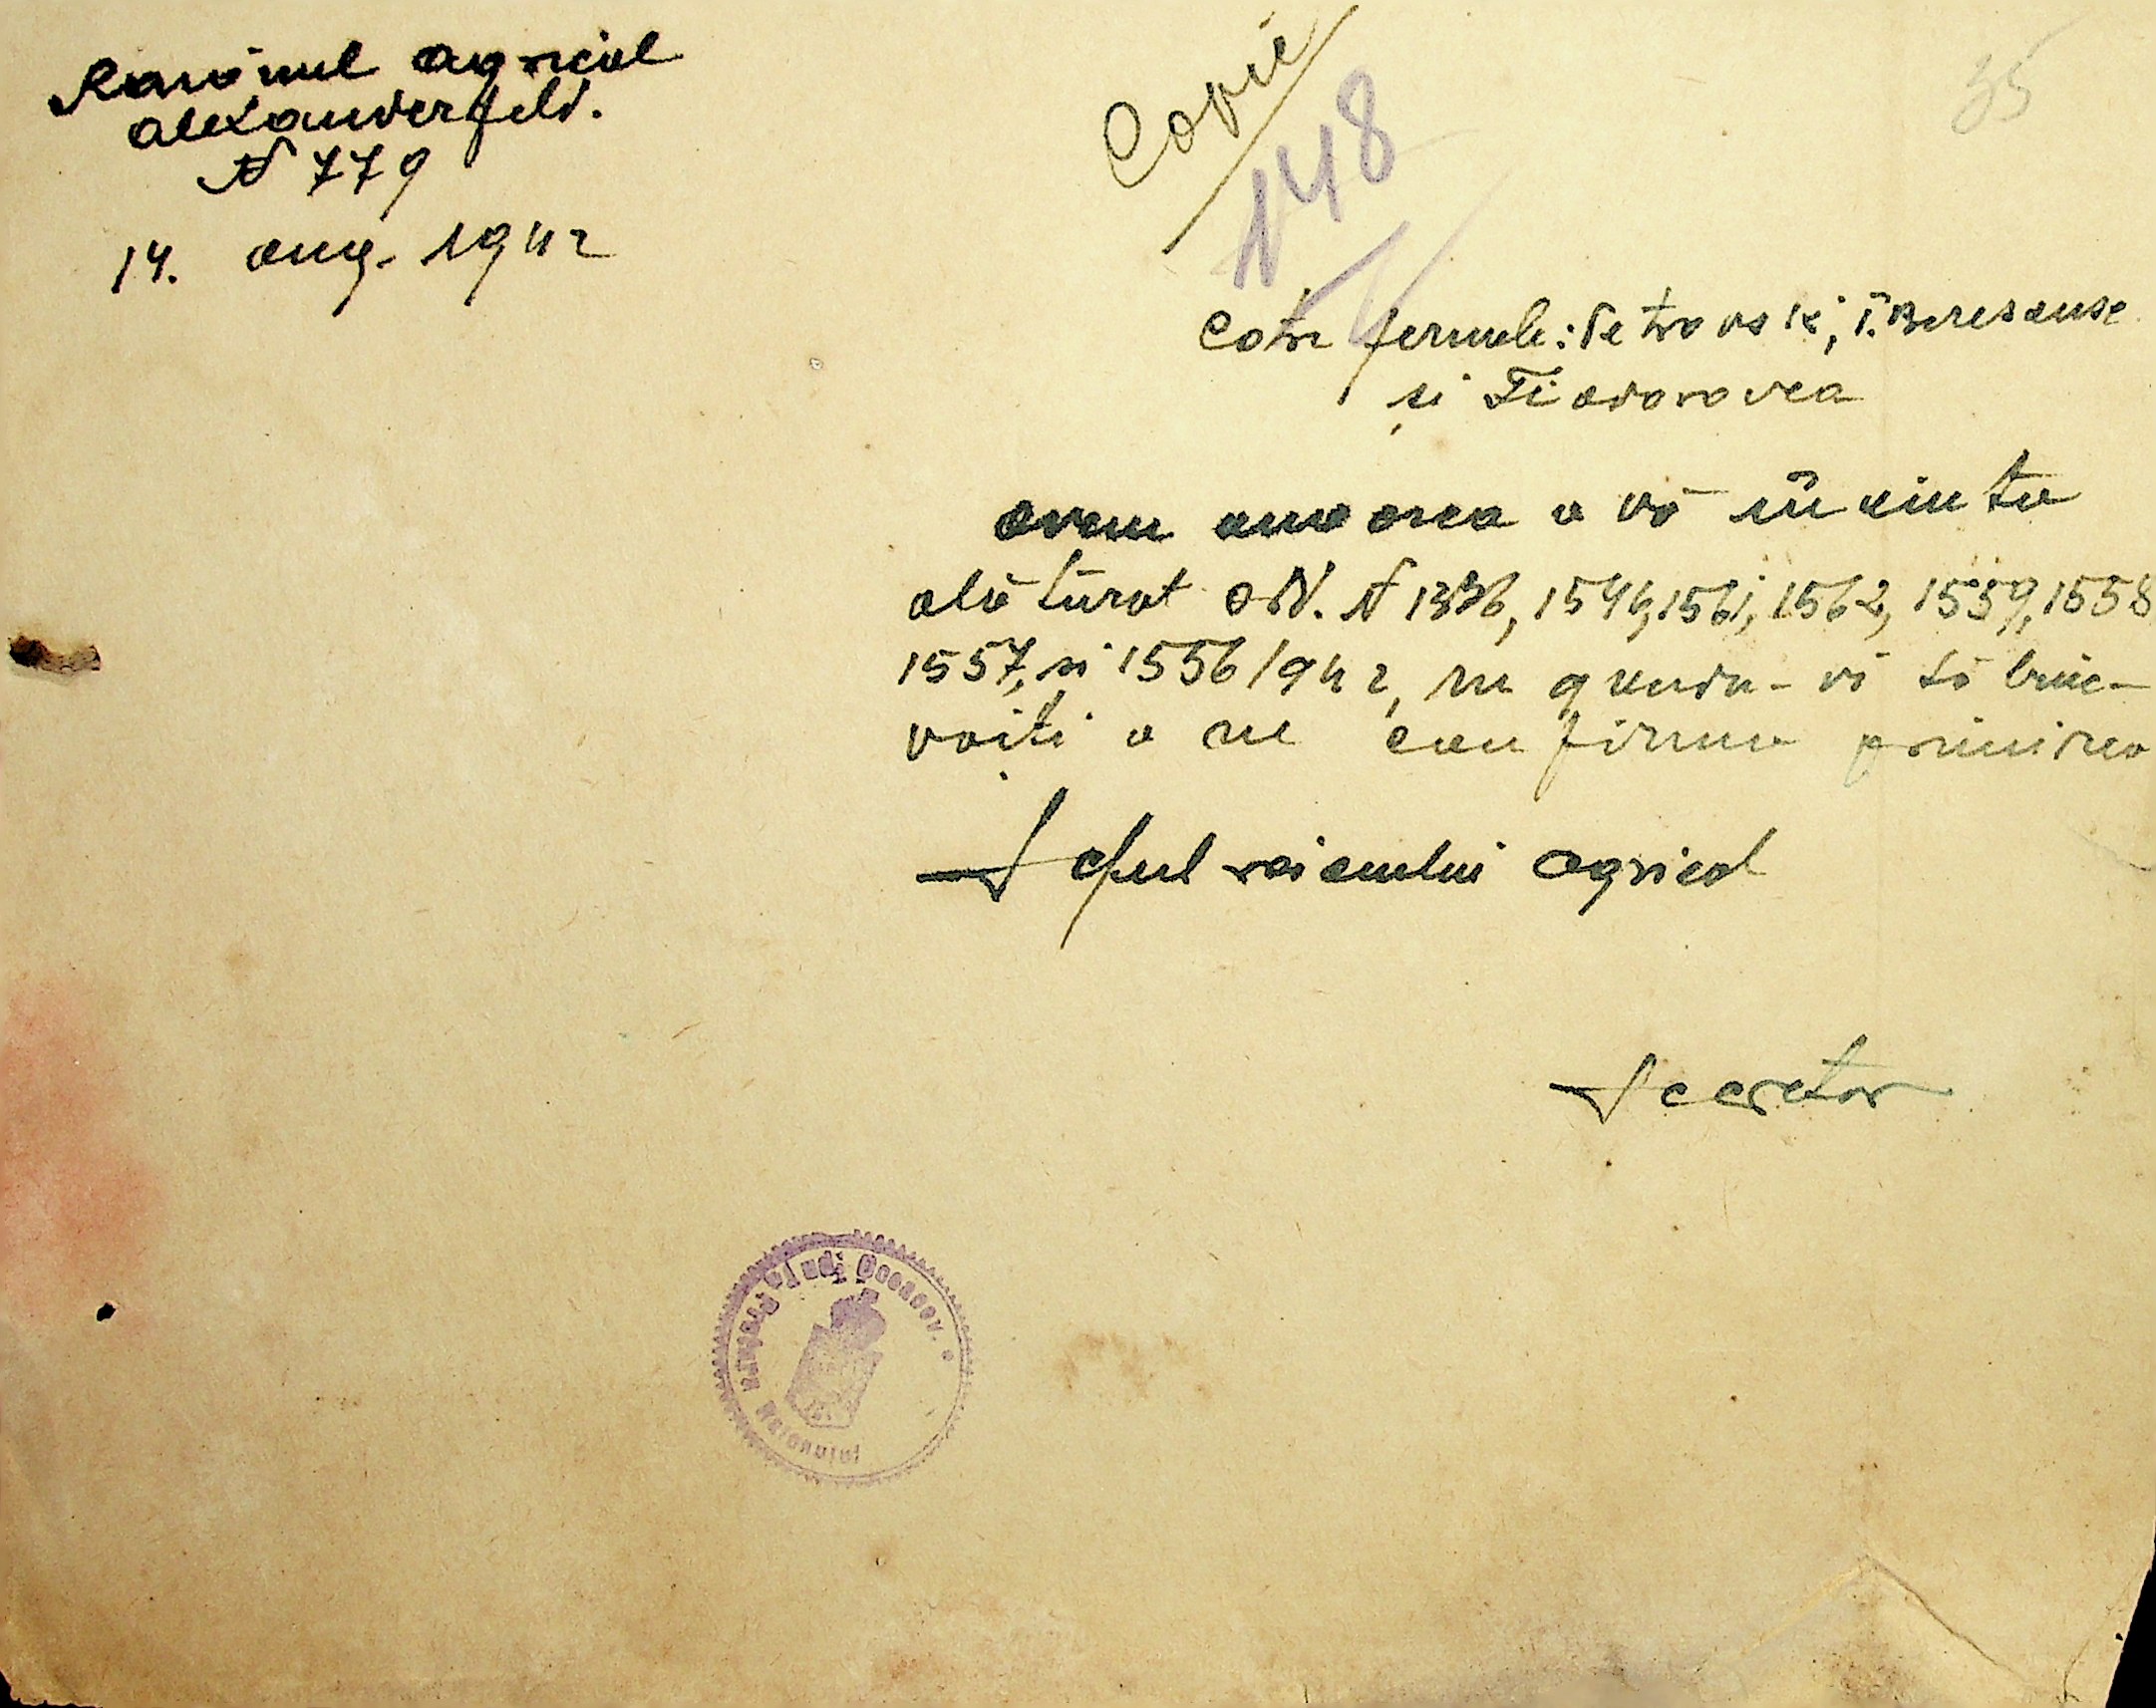 Raionul agricol
Alexanderfeld.
N 779
14. aug. 1942
Copie
148
35
Catre fermele: Petrovski, I. Beresanse
și Fiodorovca
Avem onoarea a vă înainta
alăturat N 1336, 1546, 1561, 1562, 1559, 1558
1557, și 1556/942, rugându-vă să bine-
voiți a ne confirma primirea
Șeful raionului agricol
Secretar